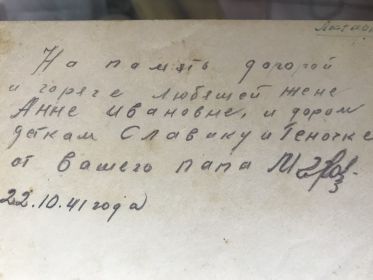 На память догорой
и горяге любящей жене
Анне ивановне, и дорогм
деткам Славику и Геночке
от вашего папа М
22.10.41 года